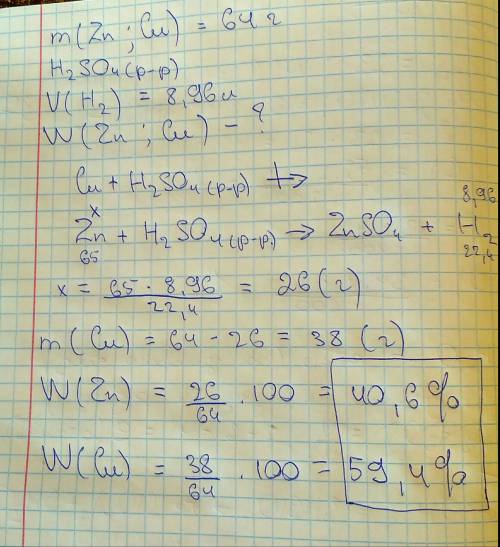 m(Zn ; Cu) = 64 г
H₂SO₄(р-р)
V(H₂) = 8,96 л
W(Zn ; Cu) - ?
Cu + H₂SO₄(р-р) ↛
x 8,96
Zn + H₂SO₄(р-р) → ZnSO₄ + H₂
65 22,4
x = 65 · 8,96 / 22,4 = 26 (г)
m(Cu) = 64 - 26 = 38 (г)
W(Zn) = 26/64 · 100 = 40,6%
W(Cu) = 38/64 · 100 = 59,4%